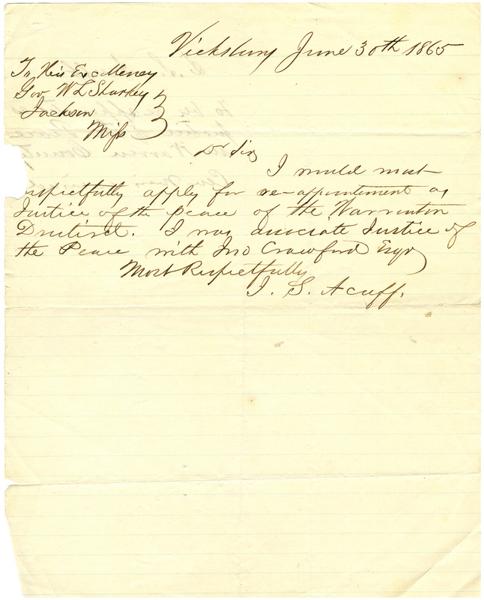 Vicksburg June 30th 1865
To His Excellency
Gov W L Sharkey
Jackson
Miss
Dr Sir
I would most
respectfully apply for re-appointment as
Justice of the peace of the Warrenton
District. I was associate Justice of
the Peace with Jno Crawford Esqr
Most Respectfully
J. S. Acuff.